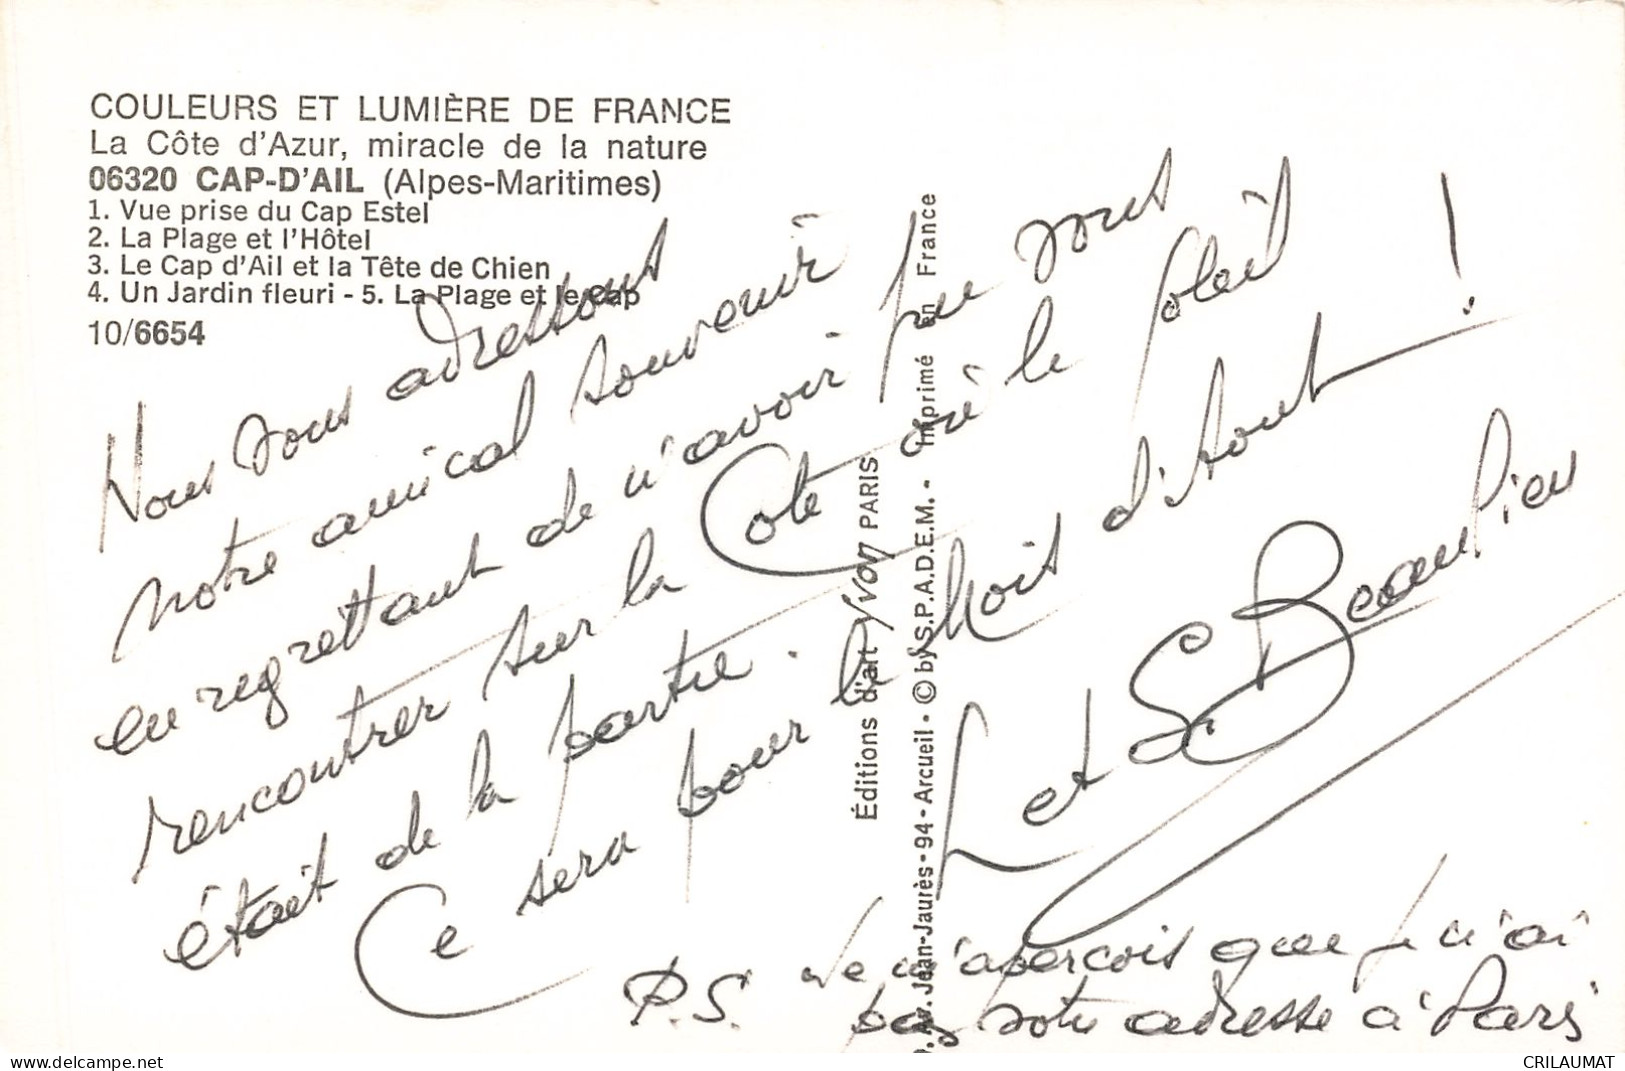 COULEURS ET LUMIÈRE DE FRANCE
La Côte d'Azur, miracle de la nature
06320 CAP-D'AIL (Alpes-Maritimes)
1. Vue prise du Cap Estel
2. La Plage et l'Hôtel
3. Le Cap d'Ail et la Tête de Chien
4. Un Jardin fleuri - 5. La Plage et le Cap
10/6654
Nous vous adressons
notre amical souvenir
en regrettant de n'avoir pu vous
rencontrer sur la Cote où le soleil
était de la partie.
Ce sera pour le Mois d'Aout !
L et S Beaulieu
P.S. Je m'aperçois que je n'ai
pas votre adresse à Paris
Éditions d'art YVON PARIS
Av. Jean-Jaurès - 94 - Arcueil - © by S.P.A.D.E.M. - Imprimé en France
www.delcampe.net
CRILAUMAT